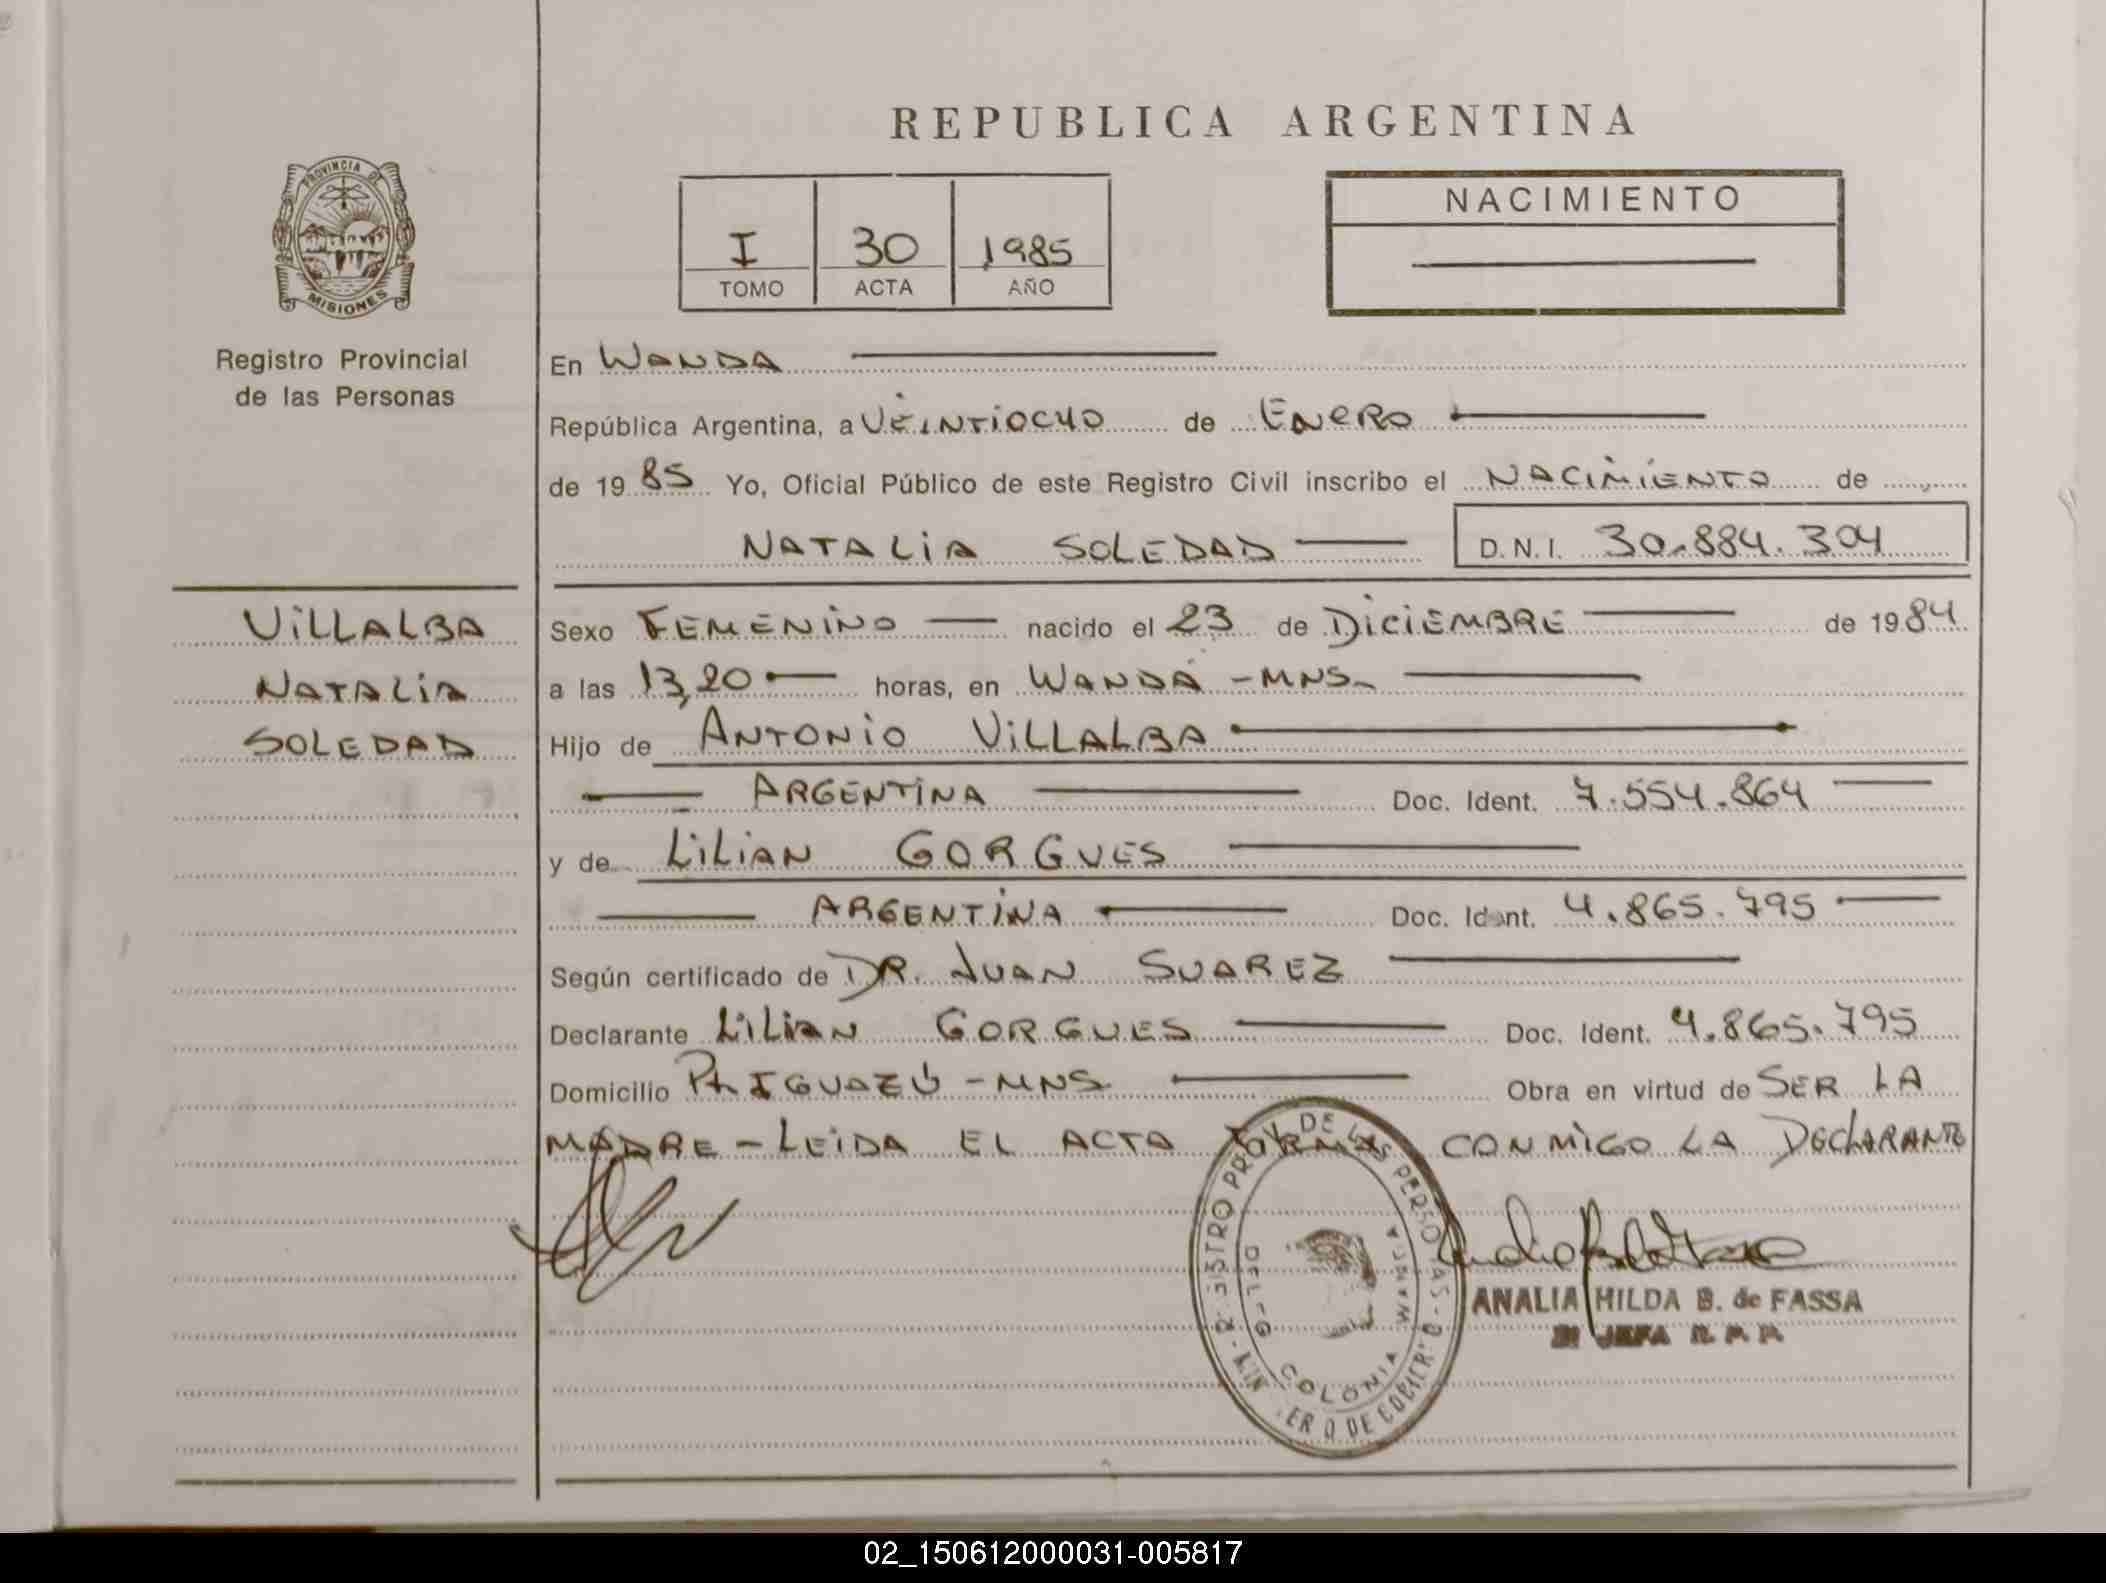 REPUBLICA ARGENTINA
PROVINCIA DE
MISIONES
Registro Provincial
de las Personas
I 30 1985
TOMO ACTA AÑO
NACIMIENTO
En WANDA
República Argentina, a VEINTIOCHO de ENERO
de 19 85 Yo, Oficial Público de este Registro Civil inscribo el NACIMIENTO de
NATALIA SOLEDAD D.N.I. 30.884.304
VILLALBA
NATALIA
SOLEDAD
Sexo FEMENINO nacido el 23 de DICIEMBRE de 19 84
a las 13,20 horas, en WANDA - MNS.
Hijo de ANTONIO VILLALBA
ARGENTINA Doc. Ident. 7.554.864
y de LILIAN GORGUES
ARGENTINA Doc. Ident. 4.865.795
Según certificado de DR. JUAN SUAREZ
Declarante LILIAN GORGUES Doc. Ident. 4.865.795
Domicilio IGUAZÚ - MNS Obra en virtud de SER LA
MADRE - LEIDA EL ACTA FIRMA CONMIGO LA DECLARANTE
DE LAS PERSONAS
COLONIA WANDA
ANALIA HILDA B. de FASSA
JEFA R. P. P.
02_150612000031-005817